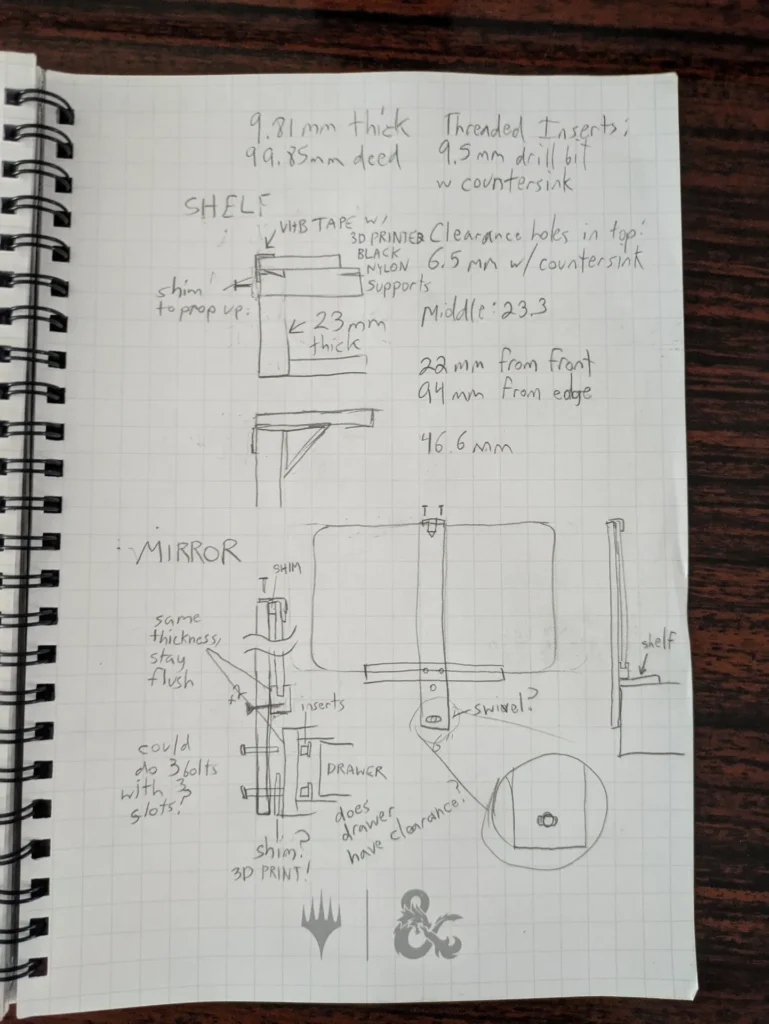 9.81mm thick
99.85mm deed
Threaded Inserts:
9.5mm drill bit
w countersink
SHELF
VHB TAPE W/
3D PRINTED
BLACK
NYLON
supports
Clearance holes in top:
6.5 mm w/ countersink
shim
to prop up.
Middle: 23.3
23mm
thick
22mm from front
94mm from edge
46.6mm
MIRROR
SHIM
same
thickness,
stay
flush
shelf
inserts
swivel?
could
do 3 bolts
with 3
slots?
DRAWER
does
drawer
have clearance?
shim?
3D PRINT!